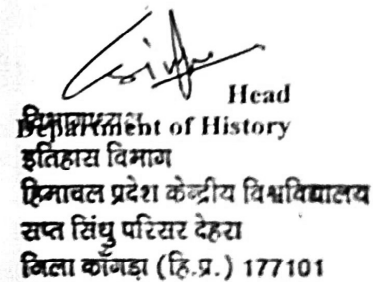 Head
विभागाध्यक्ष
Department of History
इतिहास विभाग
हिमाचल प्रदेश केन्द्रीय विश्वविद्यालय
सप्त सिंधु परिसर देहरा
जिला काँगड़ा (हि.प्र.) 177101